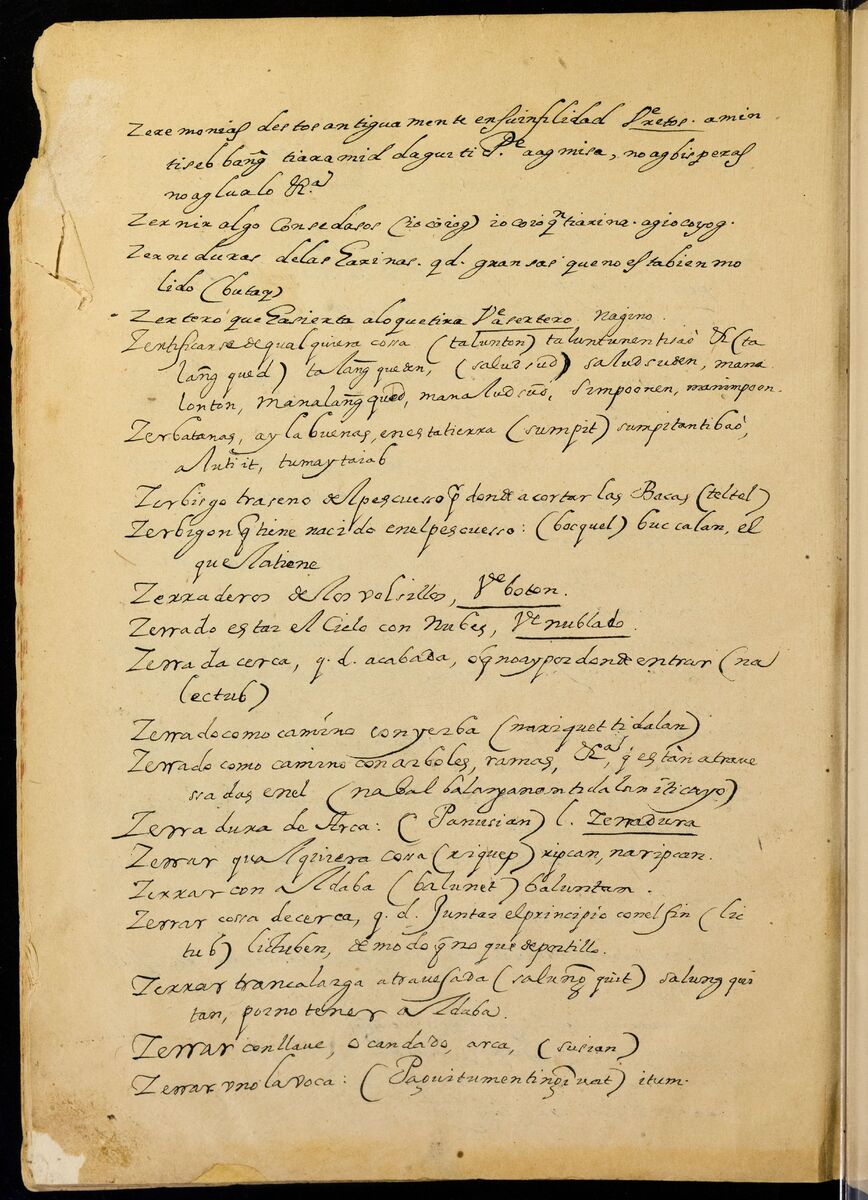 Zeremonias destos antiguamente ensuinfilidad Vᵉ retos. amin
tiseb bang̃ tiaramid daguiti Pᵉ aagmisa, no agbisperas
no aglualo &ᵃ
Zernir algo Consedasos (iocoiog) iocoio q̃ tiarina. agiocoyog.
Zerniduras delas Earinas. qd. gransas queno estabien mo
lido (butaq)
Zertero que Easierta aloquetira Vᵉ asertero. Nagino.
Zertificarse dequalquiera cossa (talunton) taluntunentisaò & (ta
lang̃ qued) talang̃ queden, (saludsud) saludsuden, mana
lonton, manalang̃ qued, manaludsũd, simpoonen, manimpoon.
Zerbatanas, ay la buenas, enestatierra (sumpit) sumpitantibaò,
a lutiit, tumaytaiab
Zerbigo traseno delpescuesso q̃ donde acortar las Bacas (teltel)
Zerbigon q̃ tiene nacido enelpescuesso: (bocquel) buccalan, el
que latiene
Zerraderos de los volsillos, Vᵈᵉ boton.
Zerrado estar el Cielo con Nubes, Vᵈᵉ nublado.
Zerrada cerca, q. d. acabada, o q̃ no ay por donde entrar (na
lectub)
Zerrado como camino con yerba (nariquet ti dalan)
Zerrado como camino con arboles, ramas, &ᵃ, q̃ están atrave
ssadas enel (naBalbalayanon tidalan iti cayo)
Zerradura de Arca: (Panusian) l. Zerradura
Zerrar qualquiera cossa (riquep) ripcan, naripcan.
Zerrar con Aldaba (balunet) baluntan.
Zerrar cossa decerca, q. d. Juntar elprincipio conel fin (lic
tub) lictuben, demodo q̃ no quedeportillo.
Zerrar trancalarga atravesada (salung̃ quit) salungqui
tan, porno tener aldaba.
Zerrar conllave, o candado, arca, (susian)
Zerrar vno la voca: (Paquitumenting̃iuat) itum.